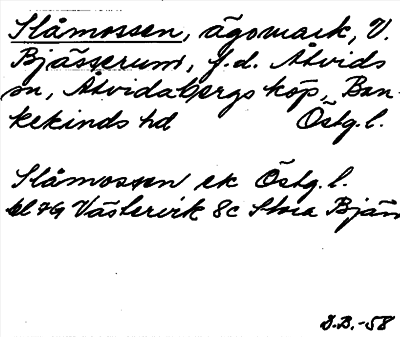 Slåmossen, ägomark, V.
Bjässerum, f.d. Åtvids
sn, Åtvidabergs köp, Ban-
kekinds hd Östg.l.
Slåmossen ek Östg.l.
bl 7G Västervik 8c Stora Bjäss
J.B.-58